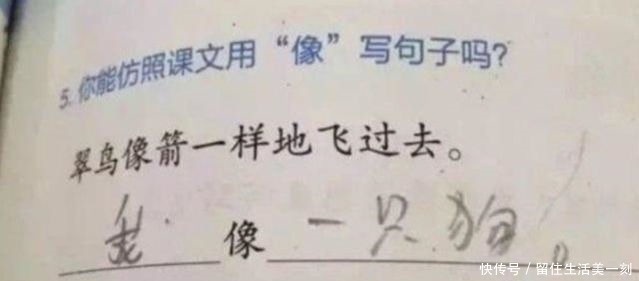 5. 你能仿照课文用“像”写句子吗?
翠鸟像箭一样地飞过去。
我像一只狗。
快传号/留住生活美一刻